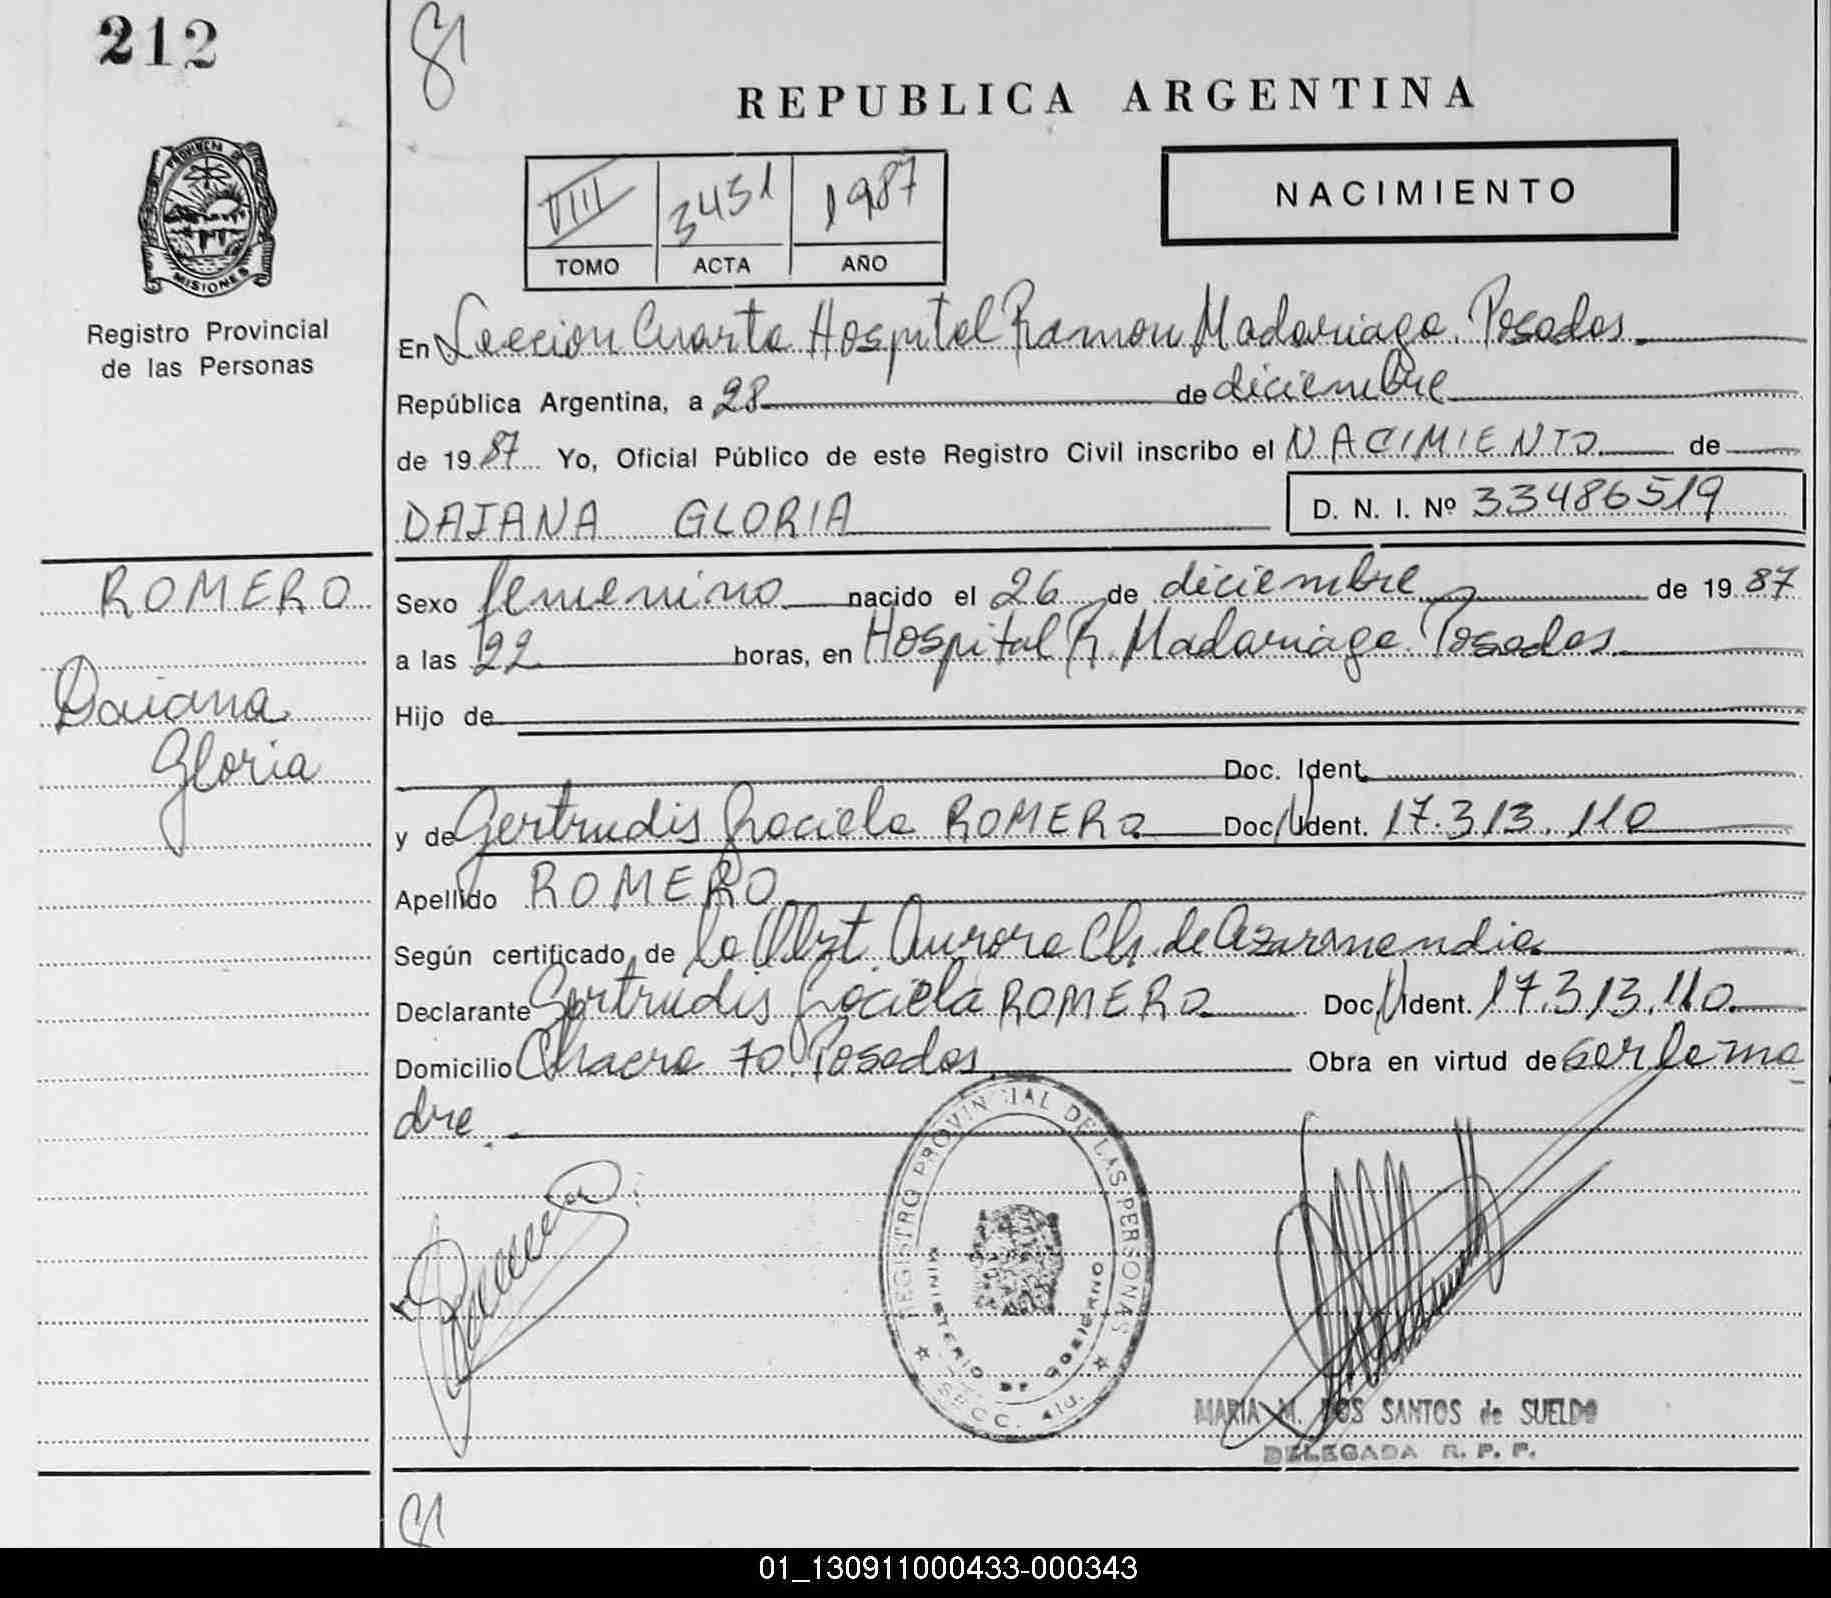 212
REPUBLICA ARGENTINA
PROVINCIA DE
MISIONES
Registro Provincial
de las Personas
VIII 3451 1987
TOMO ACTA AÑO
NACIMIENTO
En Seccion Cuarta Hospital Ramon Madariaga. Posadas
República Argentina, a 28 de diciembre
de 1987 Yo, Oficial Público de este Registro Civil inscribo el NACIMIENTO de
DAIANA GLORIA D. N. I. Nº 33486519
ROMERO
Daiana
Gloria
Sexo femenino nacido el 26 de diciembre de 1987
a las 22 horas, en Hospital R. Madariaga. Posadas
Hijo de
Doc. Ident.
y de Gertrudis Graciela ROMERO Doc. Ident. 17.313.110
Apellido ROMERO
Según certificado de la Obst. Aurora Ch. de Azarmendia
Declarante Gertrudis Graciela ROMERO Doc. Ident. 17.313.110
Domicilio Chacra 70. Posadas Obra en virtud de ser la ma
dre.
REGISTRO PROVINCIAL DE LAS PERSONAS
MINISTERIO DE GOBIERNO
SECC. 4ta.
MARIA M. DOS SANTOS de SUELDO
DELEGADA R. P. P.
01_130911000433-000343